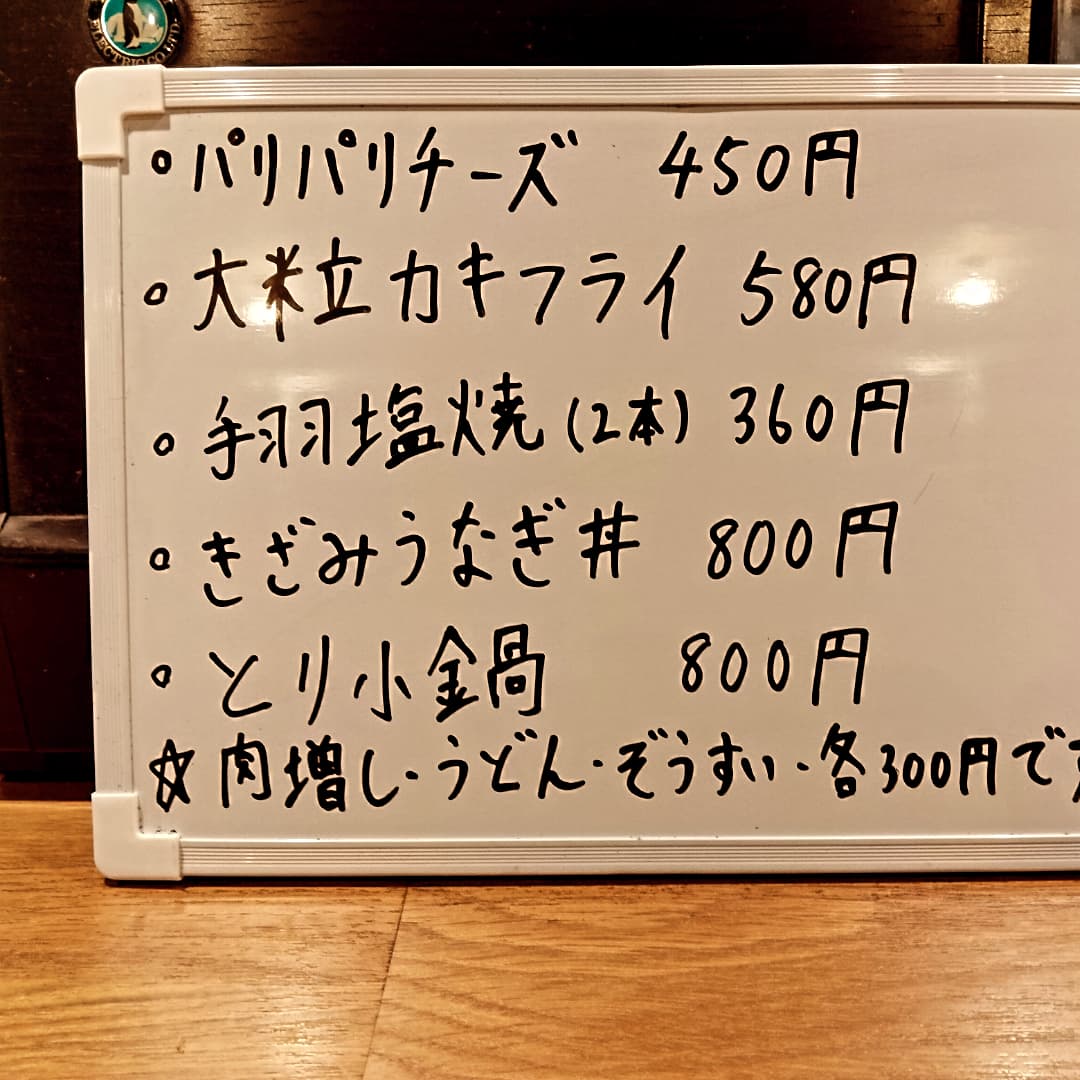 ELECTRIC CO. LTD.
◦パリパリチーズ 450円
◦大粒カキフライ 580円
◦手羽塩焼(2本) 360円
◦きざみうなぎ丼 800円
◦とり小鍋 800円
☆肉増し・うどん・ぞうすい・各300円です